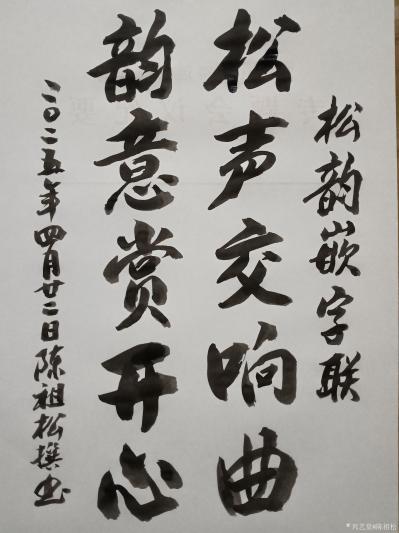 松韵嵌字联
松声交响曲
韵意赏开心
二〇二五年四月廿二日陈祖松撰书